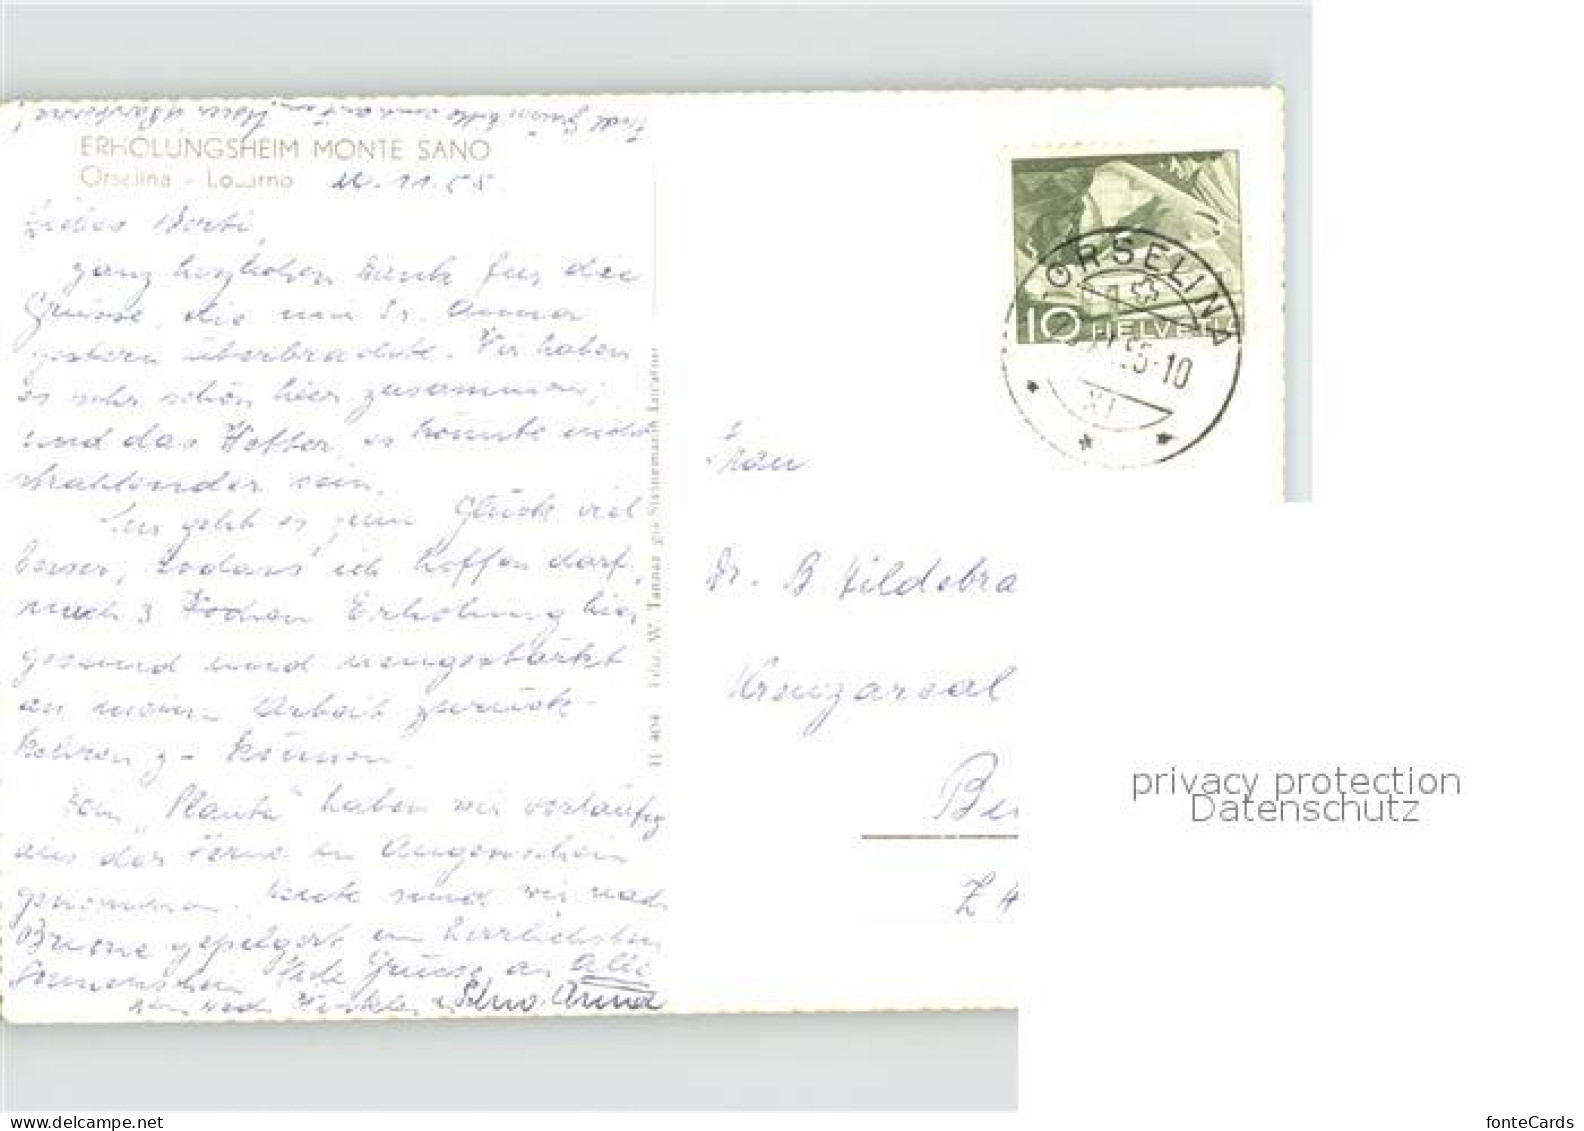 ERHOLUNGSHEIM MONTE SANO
Orselina - Locarno 11.55
Liebes Berti,
ganz herzlichen Dank für die
Grüsse, die mir Sr. Anna
gestern überbrachte. Wir haben
es sehr schön hier zusammen;
und das Wetter, es könnte nicht
strahlender sein.
geht es zum Glück viel
besser, sodass ich hoffen darf,
nach 3 Wochen Erholung hier
gesund und neugestärkt
an meine Arbeit zurück-
kehren z- können.
„Planta“ haben wir vorläufig
aus der Ferne in Augenschein
genommen. Heute sind wir nach
Brione gepilgert im herrlichsten
Sonnenschein. Viele Grüsse an Alle
Schw. Anna
H 404 W. Tanner
ORSELINA
10 HELVETIA
XI.55-10
XI
Frau
Dr. B. Hildebra
Kreuzareal
Be
ZH
privacy protection
Datenschutz
www.delcampe.net
fonteCards